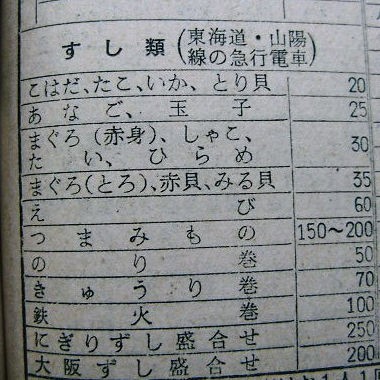 すし類(東海道・山陽
線の急行電車)
こはだ、たこ、いか、とり貝 20
あなご、玉子 25
まぐろ(赤身)、しゃこ、
たい、ひらめ 30
まぐろ(とろ)、赤貝、みる貝 35
えび 60
つまみもの 150〜200
のり巻 50
きゅうり巻 70
鉄火巻 100
にぎりずし盛合せ 250
大阪ずし盛合せ 200